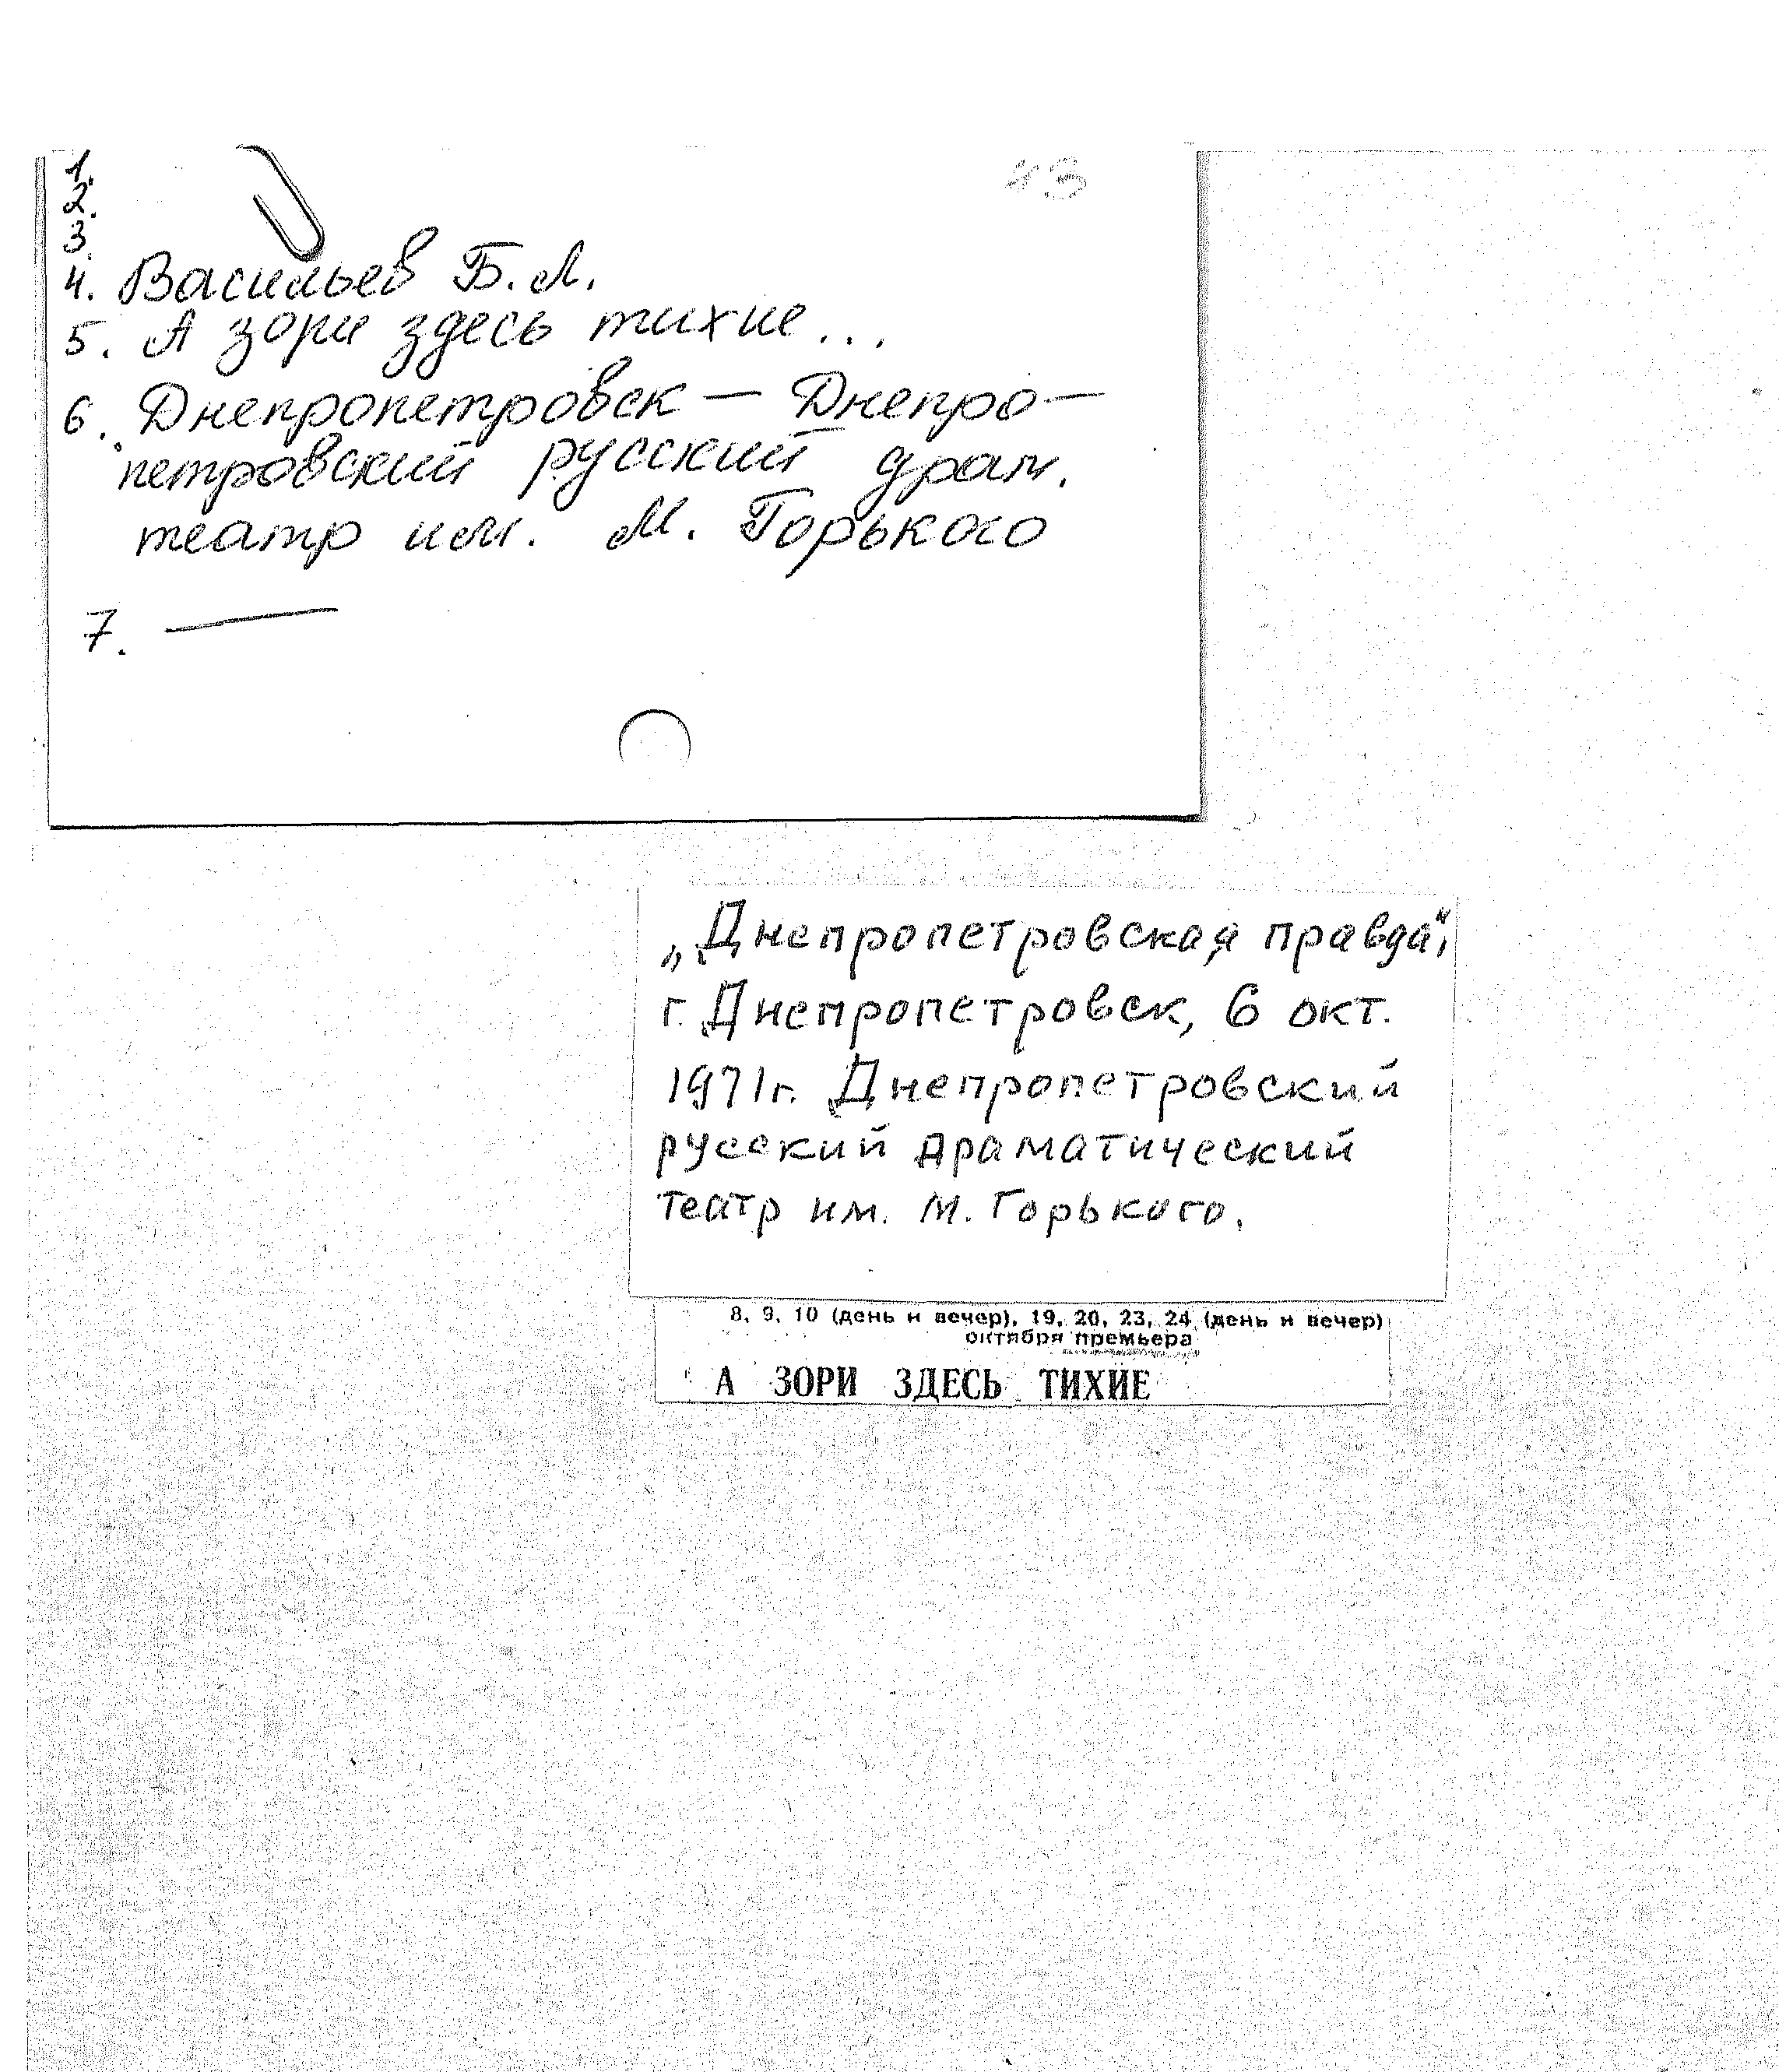 1.
2.
3.
4. Васильев Б. Л.
5. А зори здесь тихие...
6. Днепропетровск — Днепро-
петровский русский драм.
театр им. М. Горького
7. —
„Днепропетровская правда“,
г. Днепропетровск, 6 окт.
1971г. Днепропетровский
русский драматический
театр им. М. Горького.
8, 9, 10 (день и вечер), 19, 20, 23, 24 (день и вечер)
октября премьера
А ЗОРИ ЗДЕСЬ ТИХИЕ